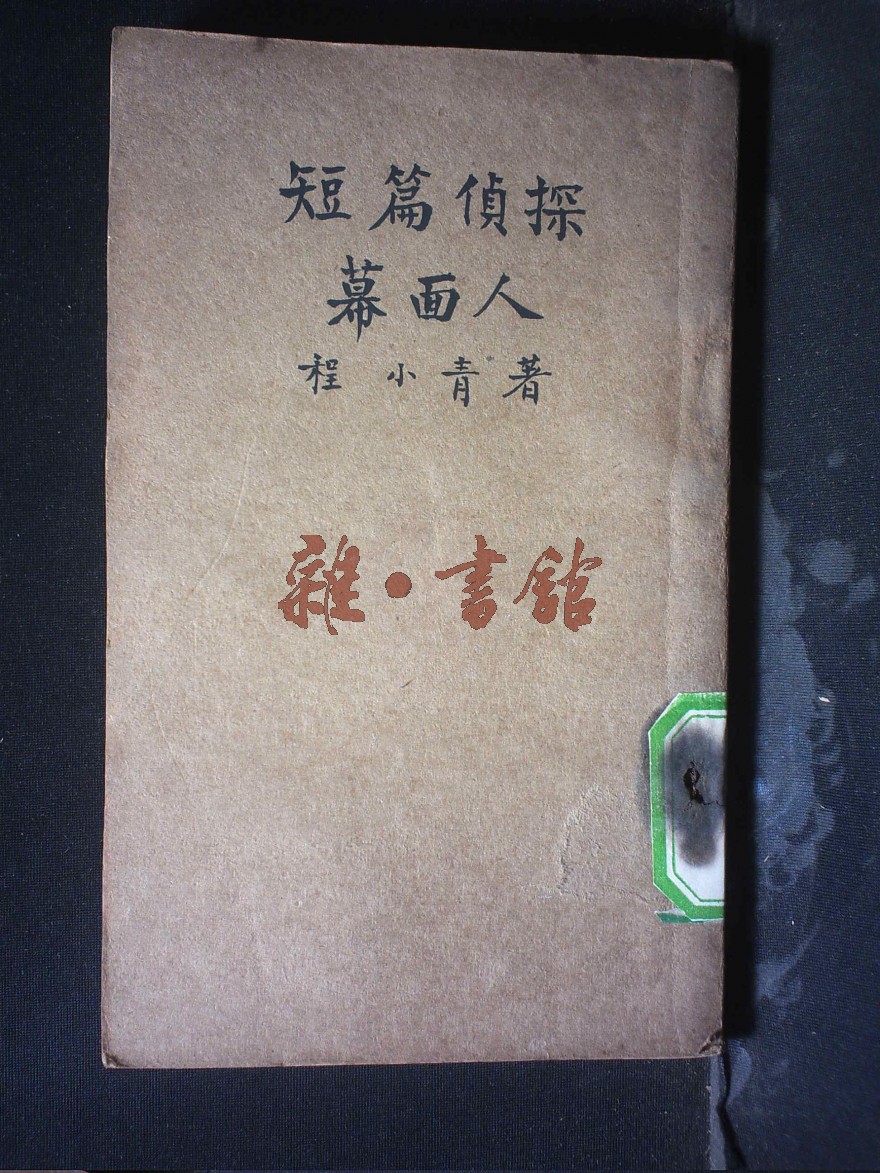 短篇偵探
幕面人
程小青著
雜·書館